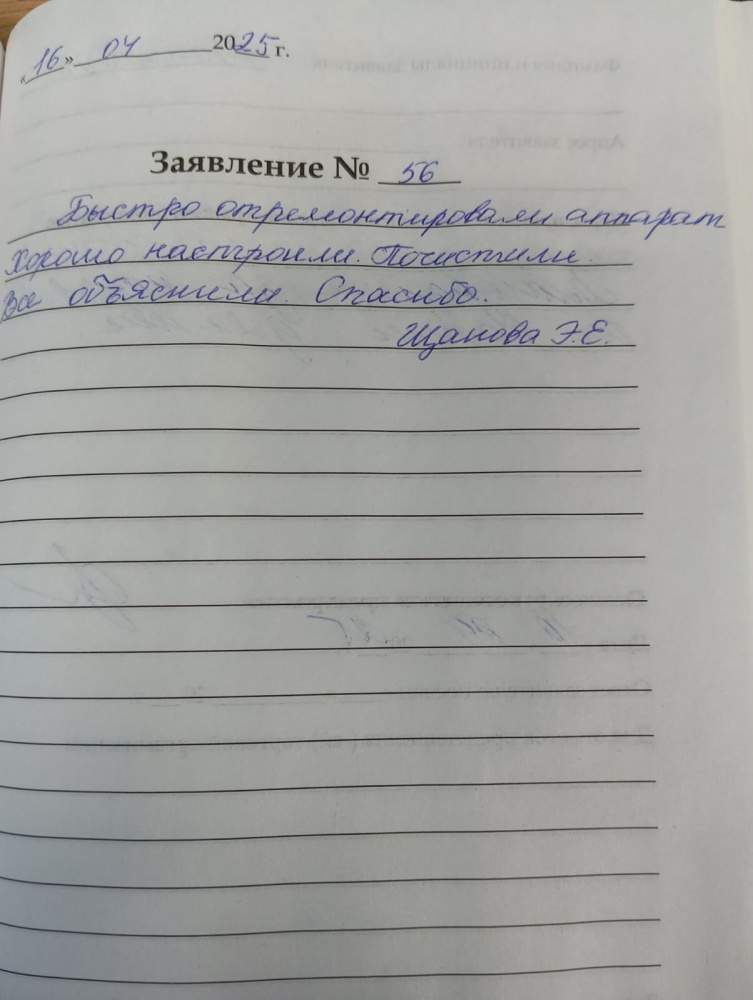 «16» 04 2025 г.
Заявление № 56
Быстро отремонтировали аппарат
Хорошо настроили. Почистили.
Все объяснили. Спасибо.
Щанова Э.Е.